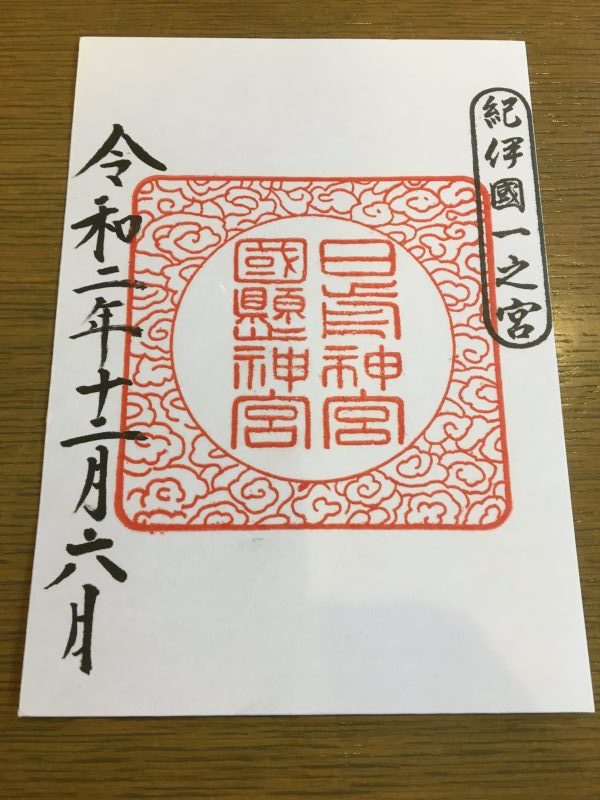 紀伊國一之宮
日前神宮
國懸神宮
令和二年十二月六日